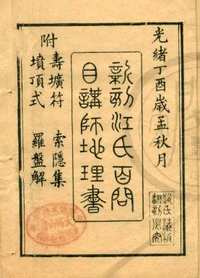 光緒丁酉歲孟秋月
新刻江氏百問
目講師地理書
索隱集
羅盤解
附壽壙符
墳頂式